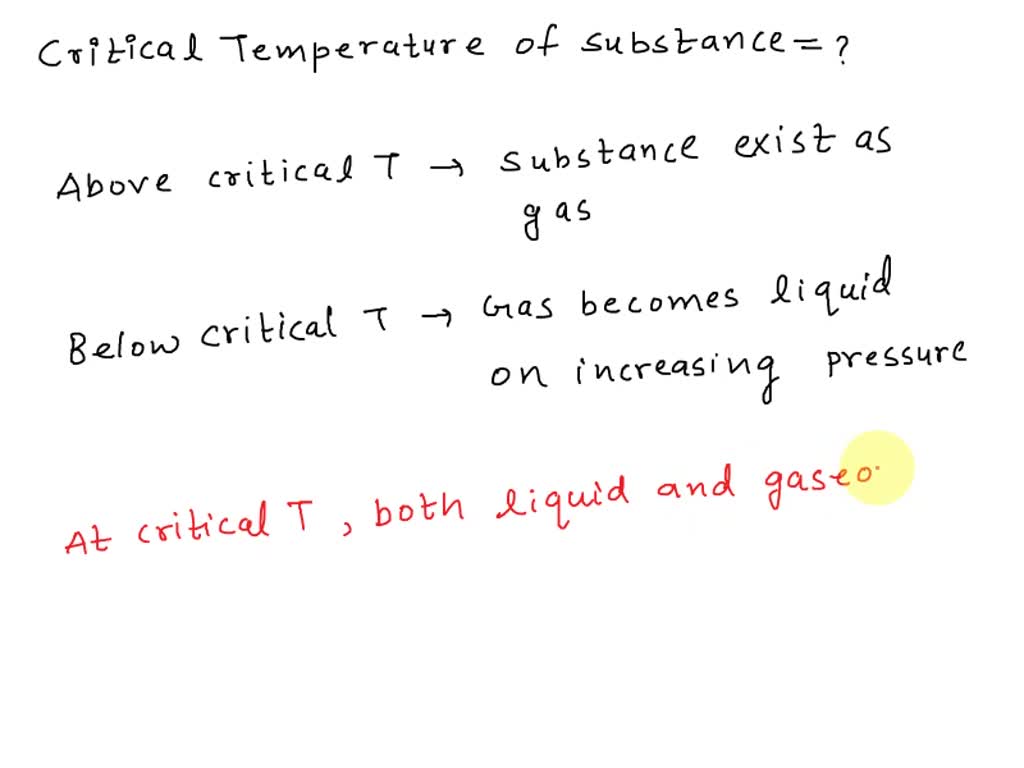 Critical Temperature of substance = ?
Above critical T → substance exist as
gas
Below critical T → Gas becomes liquid
on increasing pressure
At critical T, both liquid and gaseo